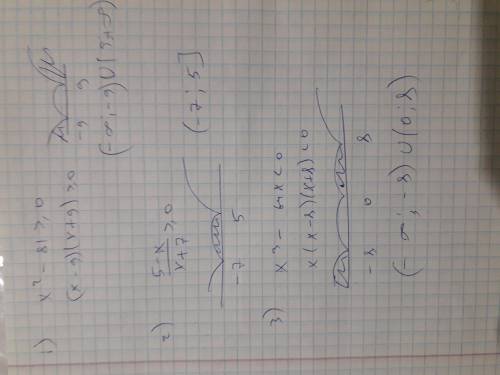 1) x² - 81 ≥ 0
(x - 9)(x+9) ≥ 0
-9 9
(-∞; -9) ∪ [9; +∞)
2) 5-x / x+7 ≥ 0
-7 5
(-7; 5]
3) x³ - 64x < 0
x(x-8)(x+8) < 0
-8 0 8
(-∞; -8) ∪ (0; 8)